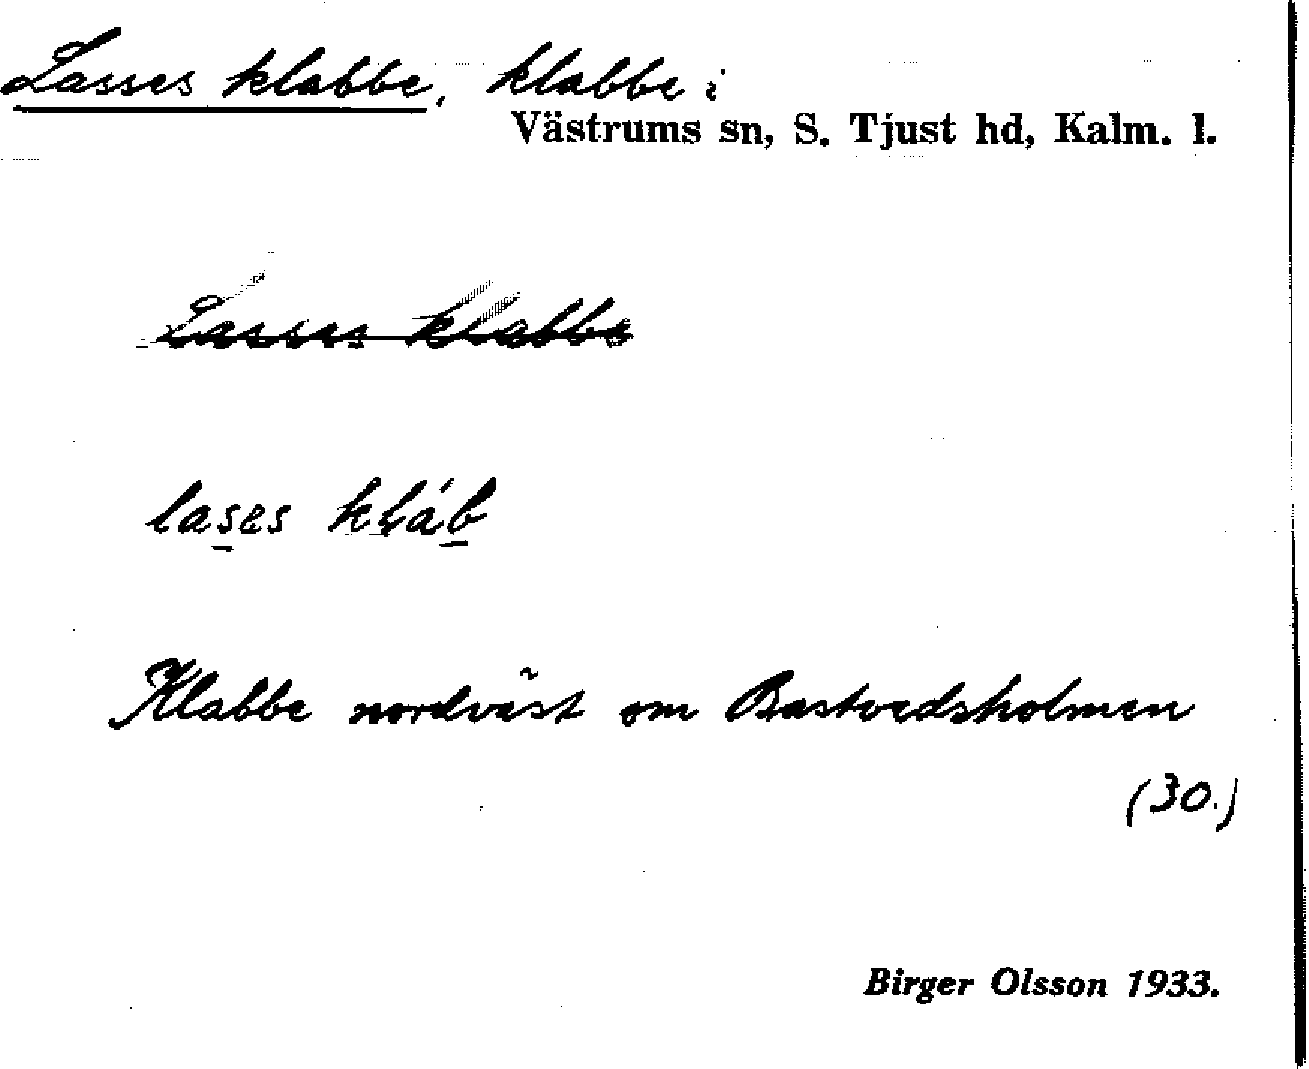 Lasses klabbe, klabbe i
Västrums sn, S. Tjust hd, Kalm. l.
Lasses klabbe
lases kláb
Klabbe nordväst om Bastvedsholmen
(30.)
Birger Olsson 1933.